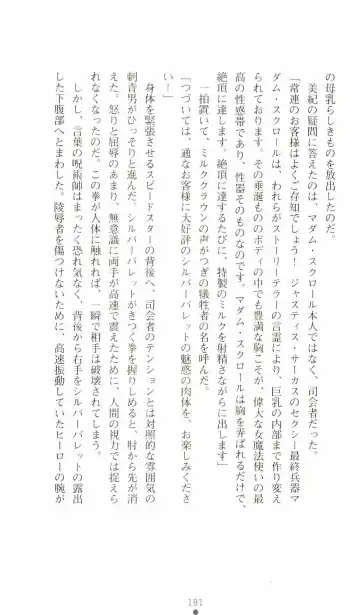 の母乳らしきものを放出したのだ。
美紀の疑問に答えたのは、マダム・スクロール本人ではなく、司会者だった。
「常連のお客様はよくご存知でしょう！　ジャスティス・サーカスのセクシー最終兵器マ
ダム・スクロールは、われらがストーリーテラーの言霊により、巨乳の内部まで作り変え
られております。その垂涎もののボディの中でも豊満な胸こそが、偉大な女魔法使いの最
高の性感帯であり、性器そのものなのです。マダム・スクロールは胸を弄ばれるだけで、
絶頂に達します。絶頂に達するたびに、特製のミルクを射精さながらに出します」
一拍置いて、ミルククラウンの声がつぎの犠牲者の名を呼んだ。
「つづいては、通なお客様に大好評のシルバーバレットの魅惑の肉体を、お楽しみくださ
い！」
身体を緊張させるスピードスターの背後へ、司会者のテンションとは対照的な雰囲気の
刺青男がひっそりと進んだ。シルバーバレットがきつく拳を握りしめると、肘から先が消
えた。怒りと屈辱のあまり、無意識に両手が高速で震えたために、人間の視力では捉えら
れなくなったのだ。この拳が人体に触れれば、一瞬で相手は破壊されてしまう。
しかし、言葉の呪術師はまったく恐れ気なく、背後から右手をシルバーバレットの露出
した下腹部へとまわした。陵辱者を傷つけないために、高速振動していたヒーローの腕が
181